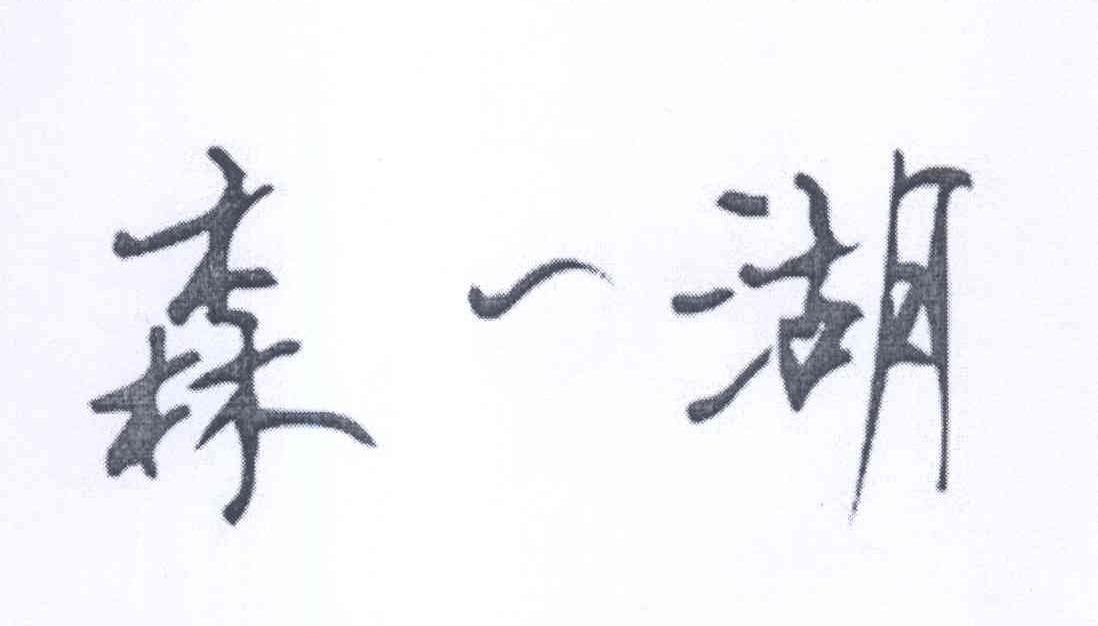 森一湖